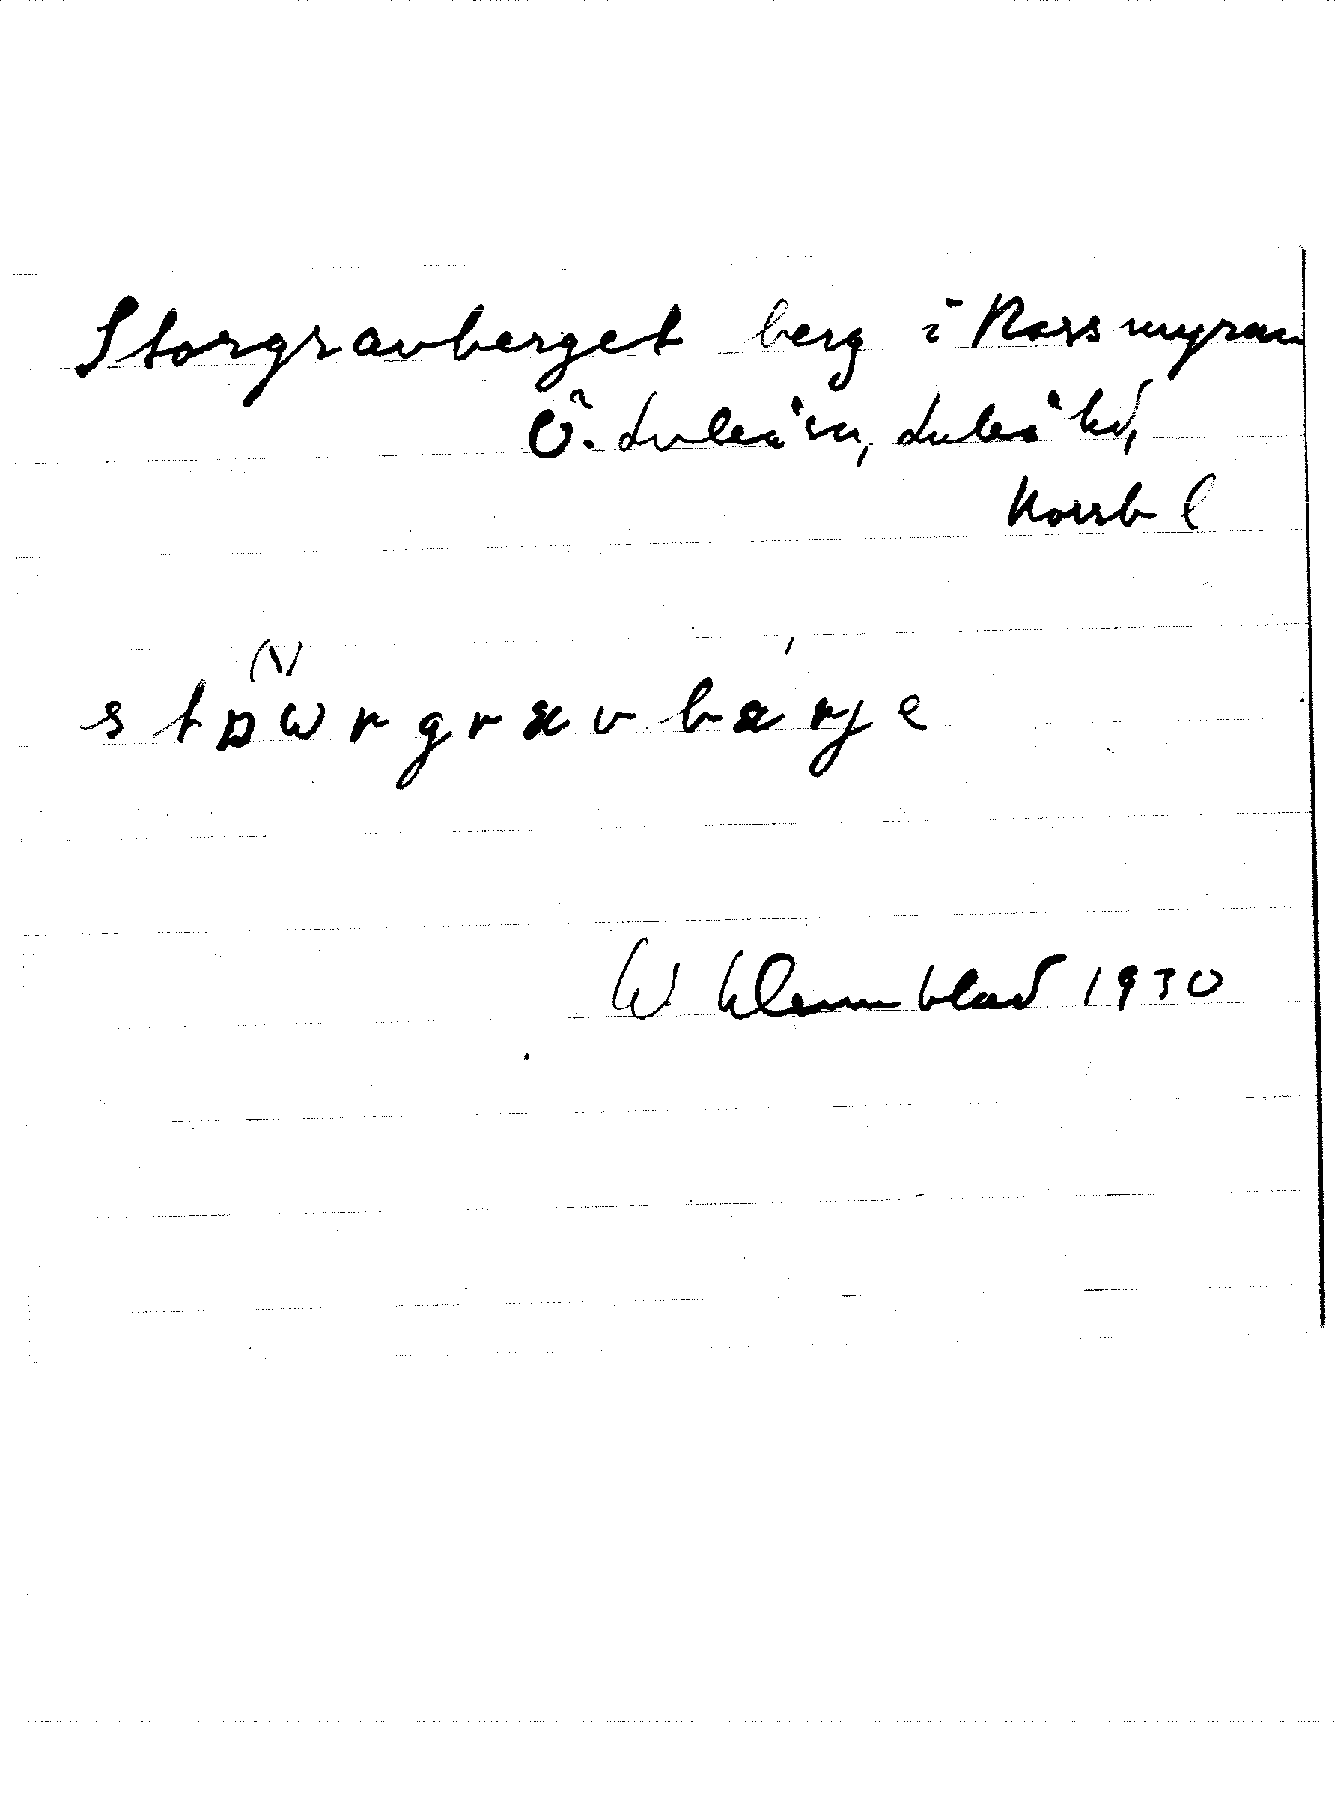 Storgravberget berg i Rossmyran
Ö. Luleå sn, Luleå hd,
Norrb l
(\)
stɒωrgrævbærje
W Klemmblad 1930